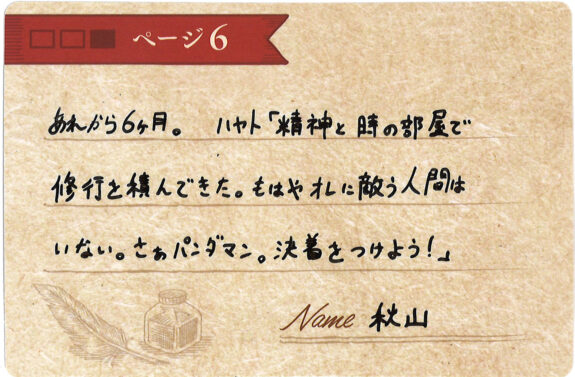 ページ6
あれから6ヶ月。 ハヤト「精神と時の部屋で
修行を積んできた。もはやオレに敵う人間は
いない。さぁパンダマン。決着をつけよう!」
Name 秋山